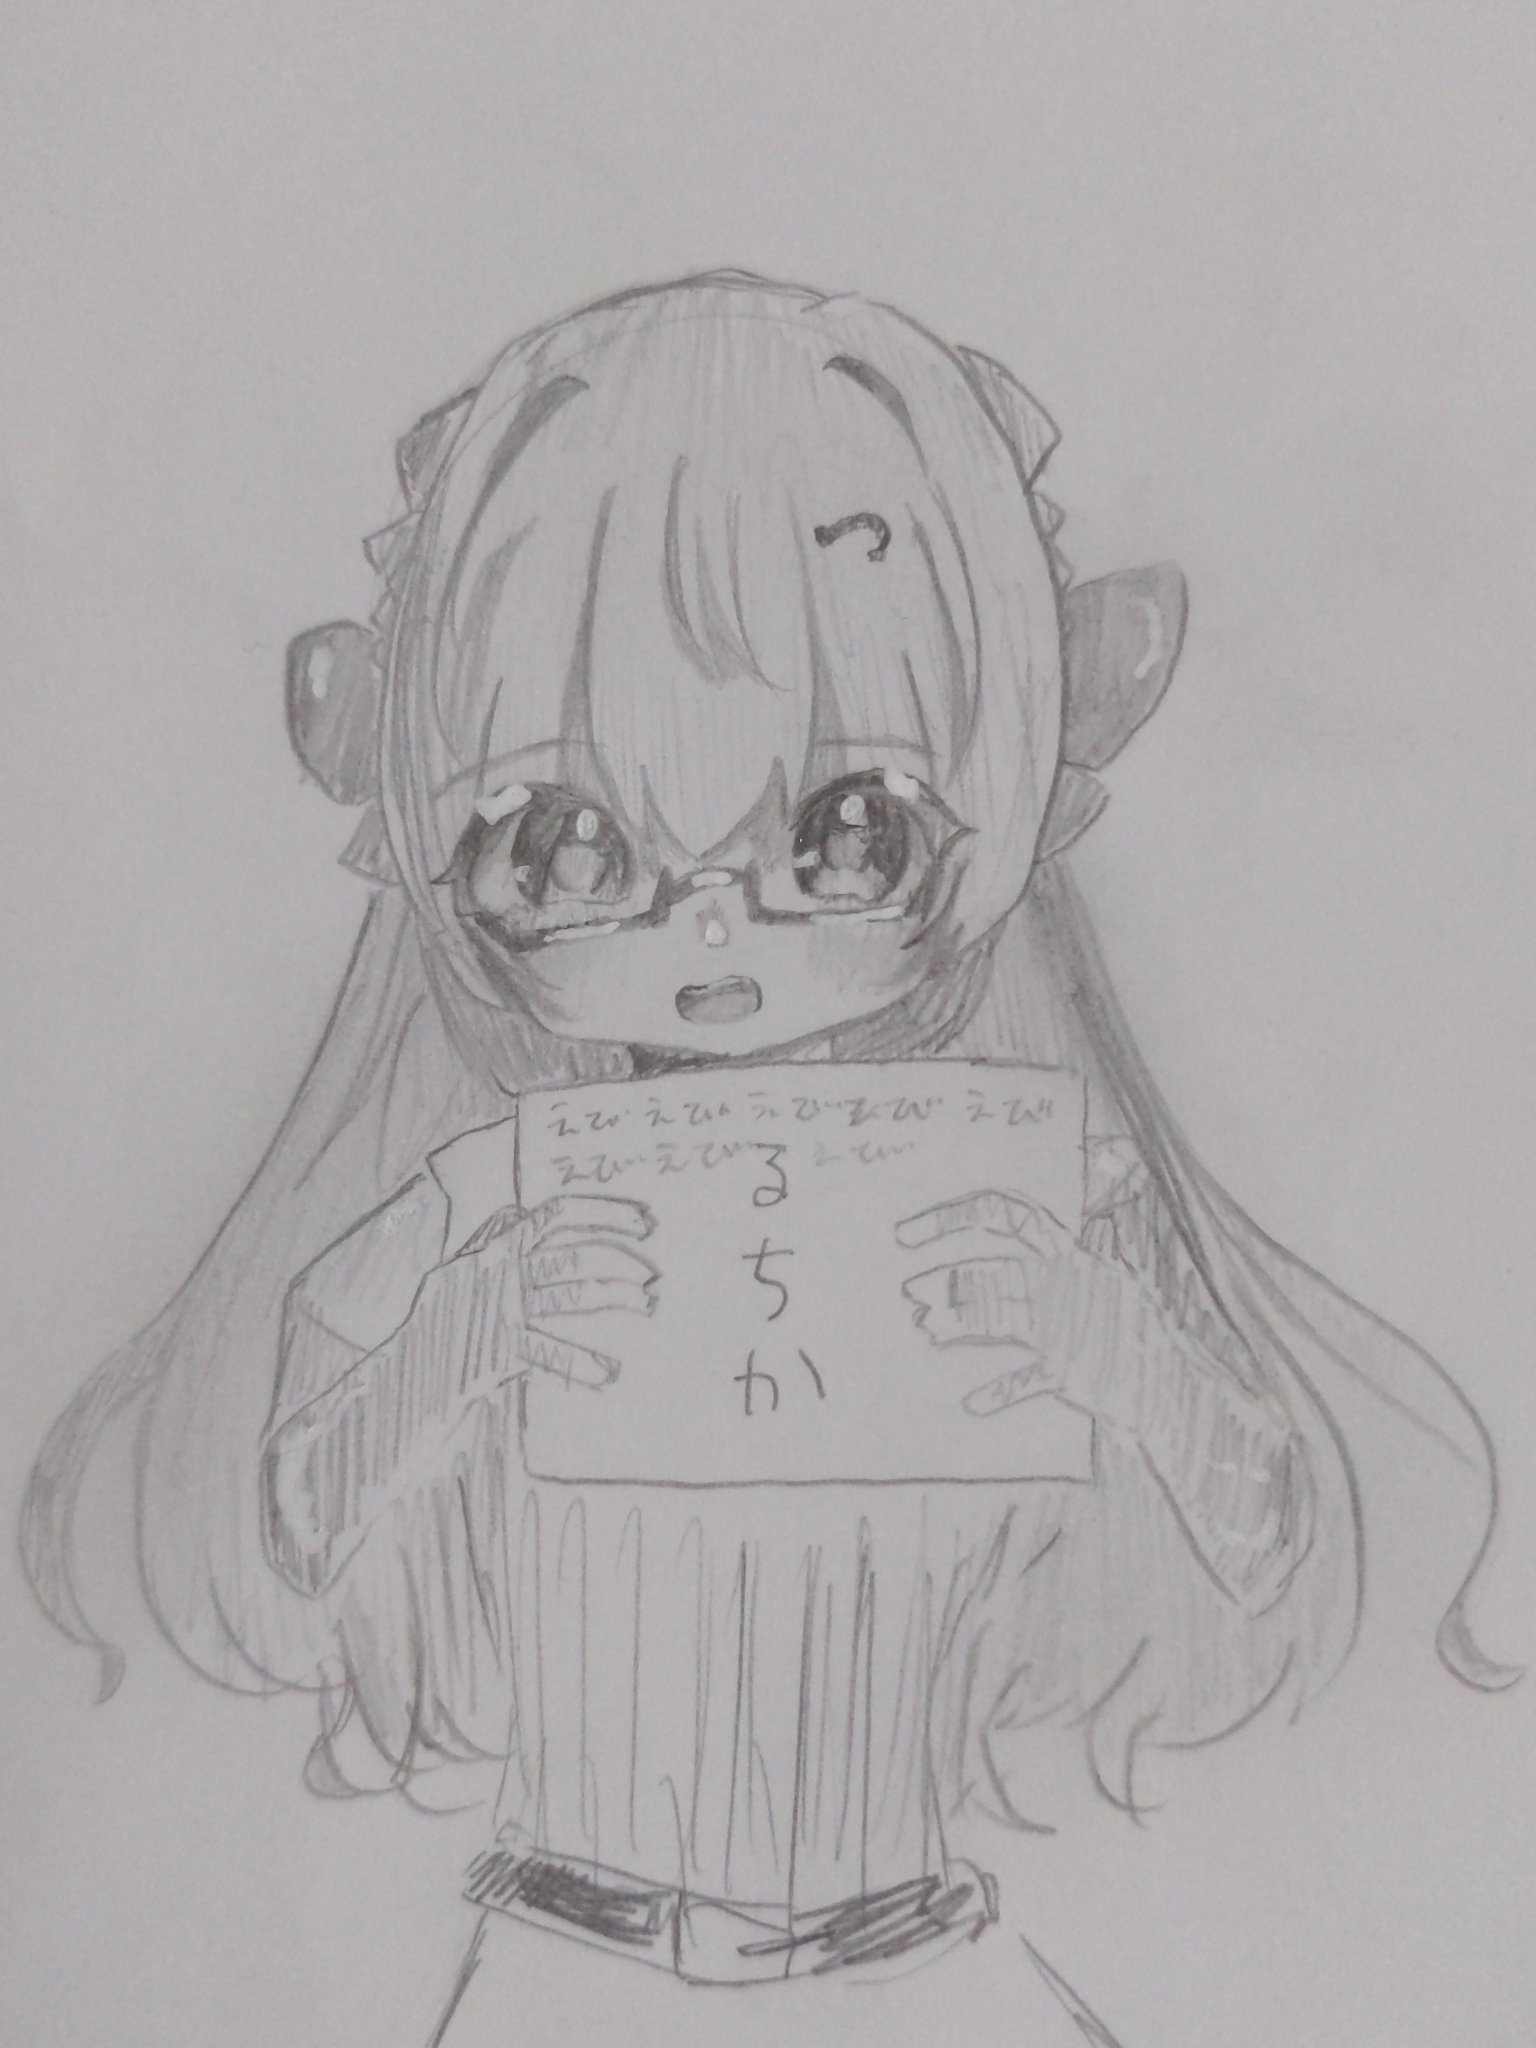 えび えび えび えび えび
えび えび えび
るちか